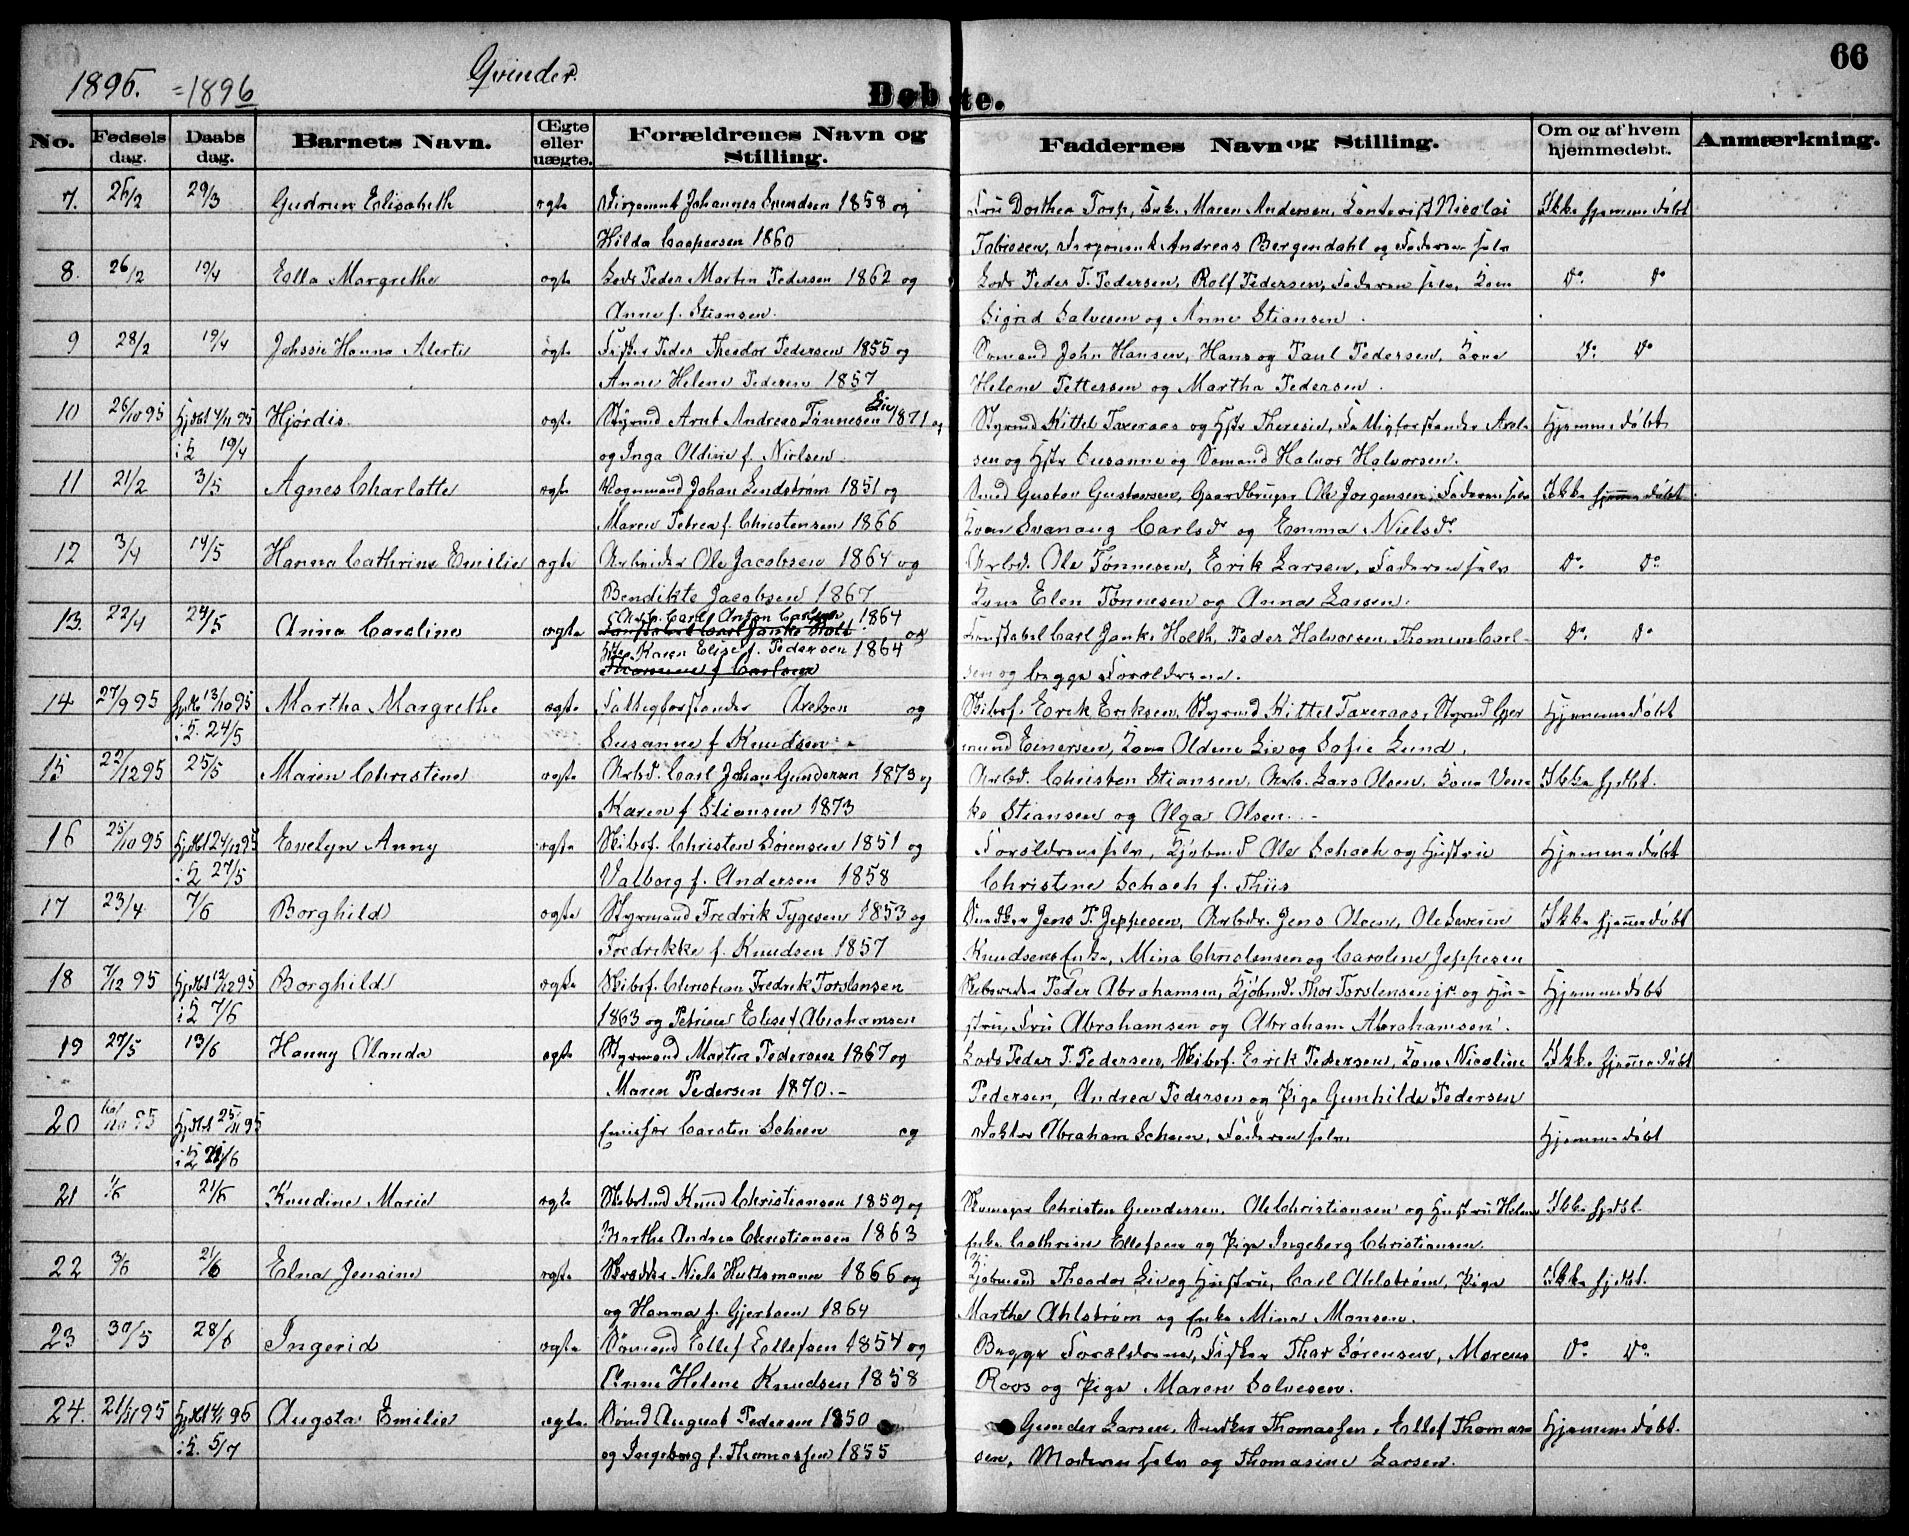 66
1895. = 1896 Qvinder.
Døbte.
No. Fødselsdag. Daabsdag. Barnets Navn. Ægte eller uægte. Forældrenes Navn og Stilling. Faddernes Navn og Stilling. Om og af hvem hjemmedøbt. Anmærkning.
7. 26/2 29/3 Gudrun Elisabeth ægte Johannes Svendsen 1858 og Fru Dorthea Torp, Enk. Maren Andersen, Nicolai Ikke hjemmedøbt
Hilda Caspersen 1860 Tobiesen, Andreas Bergendahl og Faderen selv
8. 26/2 19/4 Ella Margrethe ægte Lods Peder Martin Pedersen 1862 og Lods Peder T. Pedersen, Rolf Pedersen, Faderen selv, Kone Do. Do
Anne f. Stiansen. Sigrid Salvesen og Anne Stiansen.
9 28/2 19/4 Hanna ægte Fisker Peder Theodor Pedersen 1855 og Sømand John Hansen, Hans og Paul Pedersen, Kone Do. Do
Anne Helene Pedersen 1857 Helene Pettersen og Martha Pedersen.
10 26/10 95 hjdbt 4/11 95 Hjørdis. ægte Styrmd Arnt Andreas Tønnesen Liv 1871 og Styrmd Kittel Taxeraas og Hstr Theresie, Fattigforstander Axel- Hjemmedøbt
i K 19/4 og Inga Oldine f. Nielsen. sen og Hstr Susanne og Sømand Halvor Halvorsen.
11 21/2 3/5 Agnes Charlotte ægte Vognmand Johan Lindstrøm 1851 og Smed Gustav Gustavsen, Gaardbruger Ole Jørgensen, Faderen selv Ikke hjemmedøbt.
Maren Petrea f. Christensen 1866 Kone Svanaug Carlsdr og Emma Nielsdr
12 3/4 14/5 Hanna Cathrine Emilie ægte Arbeider Ole Jacobsen 1864 og Arbd. Ole Tønnesen, Erik Larsen, Faderen selv Do. Do.
Bendikte Jacobsen 1867 Kone Elen Tønnesen og Anna Larsen.
13. 22/4 24/5 Anna Caroline ægte Arb. Carl Anton Carlsen 1864 og Konstabel Carl Janke Holth, Peder Halvorsen, Thomine Carl- Do. Do
Konstabel Carl Janke Holt
Hstr Karen Elise f. Pedersen 1864 sen og begge Forældrene.
Thomine f. Carlsen
14 27/9 95 hjdbt 13/10 95 Martha Margrethe ægte Fattigforstander Axelsen og Skibsf. Erik Eriksen, Styrmd Kittel Taxeraas, Styrmd Gjer- Hjemmedøbt
i K. 24/5 Susanne f Knudsen mund Einersen, Kone Oldene Liv og Sofie Lund.
15 22/12 95 25/5 Maren Christine ægte Arbd. Carl Johan Gundersen 1873 og Arbd. Christen Stiansen, Arb. Lars Olsen, Kone Ven- Ikke hjdbt.
Karen f Stiansen 1873 ke Stiansen og Olga Olsen.
16 25/10 95 hjdbt 24/12 95 Evelyn Anny ægte Skibsf. Christen Sørensen 1851 og Forældrene selv, Kjøbmd Ole Schach og Hustru Hjemmedøbt
i K 27/5 Valborg f. Andersen 1858 Christene Schach f. Thiis
17 23/4 7/6 Borghild ægte Styrmand Fredrik Tygesen 1853 og Snedker Jens P. Jeppesen, Arbdr. Jens Olsen, Ole Severin Ikke hjemmedøbt
Fredrikke f. Knudsen 1857 Knudsens Enke, Mina Christensen og Caroline Jeppesen
18 7/12 95 hjdbt 12/12 95 Borghild ægte Skibsf. Christian Fredrik Torstensen Skibsreder Peder Abrahamsen, Kjøbmd. Thor Torstensen jr. og Hu- Hjemmedøbt
i K 7/6 1863 og Petrine Elise f Abrahamsen stru, Fru Abrahamsen og Abraham Abrahamsen.
19 27/5 13/6 Hanny Alanda ægte Styrmand Martin Pedersen 1867 og Lods Peder T. Pedersen, Skibsf. Erik Pedersen, Kone Nicoline Ikke hjemmedøbt
Maren Pedersen 1870. Pedersen, Andrea Pedersen og Pige Gunhilde Pedersen
20 95 hjdbt 25/11 95 Carsten Scheen og Doktor Abraham Scheen, Faderen selv Hjemmedøbt
i K 21/6
21 1/6 21/6 Knudine Marie ægte Knud Christiansen 1859 og Christen Gundersen, Ole Christiansen og Hustru Helene Ikke hjdbt.
Marthe Andrea Christiansen 1863 Enke Cathrine Ellefsen og Pige Ingeborg Christiansen.
22 3/6 21/6 Elna Jensine ægte Skrædder Niels Hultsmann 1866 og Kjøbmand Theodor Liv og Hustru, Carl Ahlstrøm, Pige Ikke hjdbt.
og Hanna f. Gjertsen 1864 Marthe Ahlstrøm og Enke Mina Monsen.
23 30/5 28/6 Ingerid ægte Sømand Ellef Ellefsen 1854 og Begge Forældrene, Fisker Thor Sørensen, Marcus Do. Do.
Anne Helene Knudsen 1858 Roos og Pige Maren Salvesen.
24. 21/11 95 hjdbt 96 Augsta Emilie ægte Sømd August Pedersen 1850 Gunder Larsen, Snedker Thomassen, Ellef Thomas- Hjemmedøbt.
i K. 5/7 og Ingeborg f. Thomassen 1855 sen, Moderen selv og Thomasine Larsen.